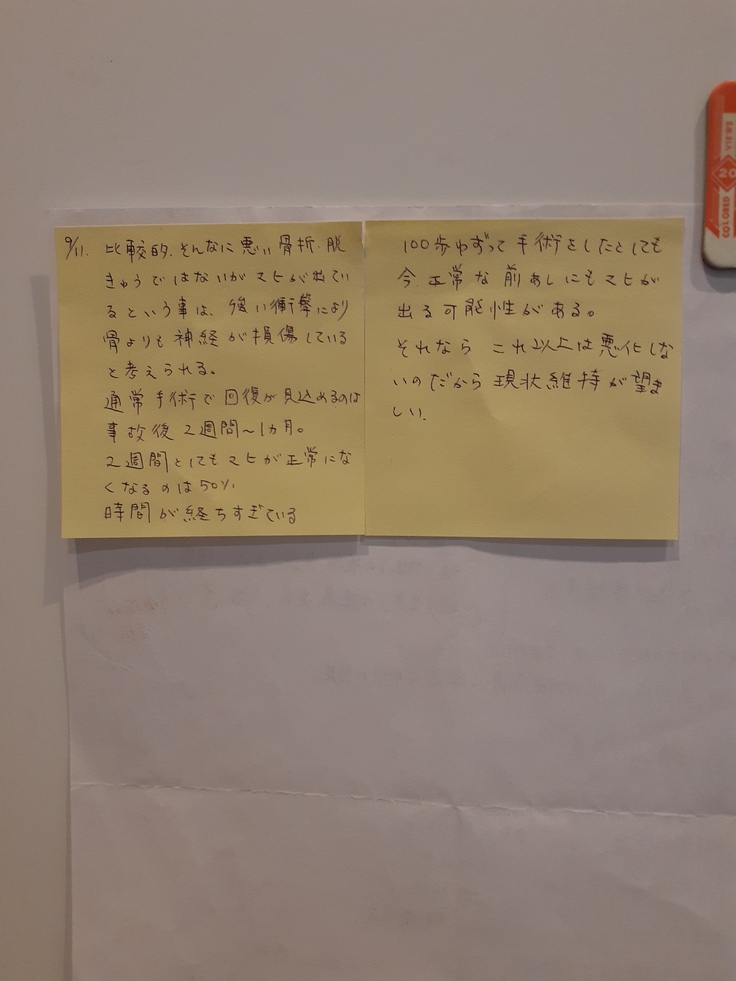 9/11. 比較的、そんなに悪い骨折・脱
きゅうではないがマヒが出てい
るという事は、強い衝撃により
骨よりも神経が損傷している
と考えられる。
通常手術で回復が見込めるのは
事故後2週間〜1カ月。
2週間としてもマヒが正常にな
くなるのは50%
時間が経ちすぎている
100歩ゆずって手術をしたとしても
今、正常な前あしにもマヒが
出る可能性がある。
それなら これ以上は悪化しな
いのだから 現状維持が望ま
しい.
COLORED
20